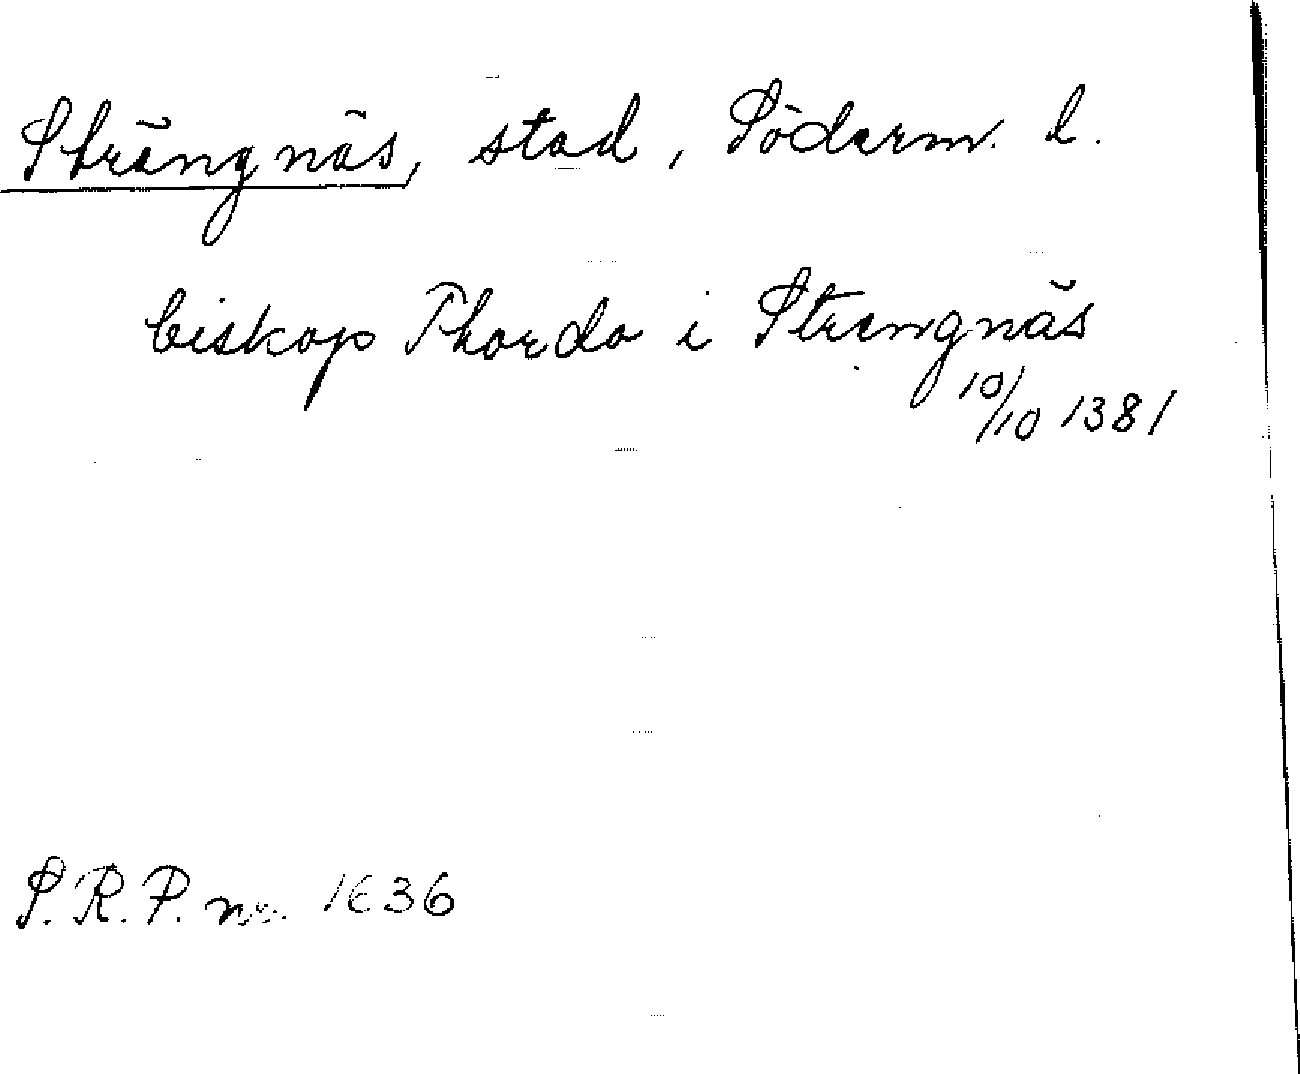 Strängnäs, stad, Söderm. l.
biskop Thordo i Strengnäs
10/10 1381
S.R.P. nr. 1636